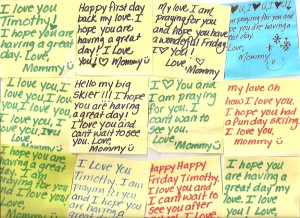 I love you
Timothy!
I hope you are
having a great
day!
Love,
Mommy
Happy first day
back my love. I
hope you are
having a
great day! I
♡ you!
Love,
Mommy
My love, I am
praying for you
and hope you have
a wonderful Friday
I ♡ you!
Love,
Mommy
I ♡ U, I
praying for you
and hope you are
having a great day
Love,
Mommy
I love you, I
love you, I
love you, I
love you, I
Love,
Mommy
Hello my big
skier! I hope
you are having
a great day.
I love you and
can't wait to see
you.
Love, Mommy
I ♡ You and
am praying
for you. I
can't wait to
see you.
Love,
Mommy
my love oh
how I love you.
I hope you had
a fun day skiing.
I love you,
mommy
I hope you are
having a great
day. I am
praying for you
I love you!
Love,
I Love You
Timothy. I am
praying for you
and I hope you
Happy Happy
Friday Timothy.
I love you and I
can't wait to
see you after
I hope you
are having a
great day my
love. I love
you! Love,